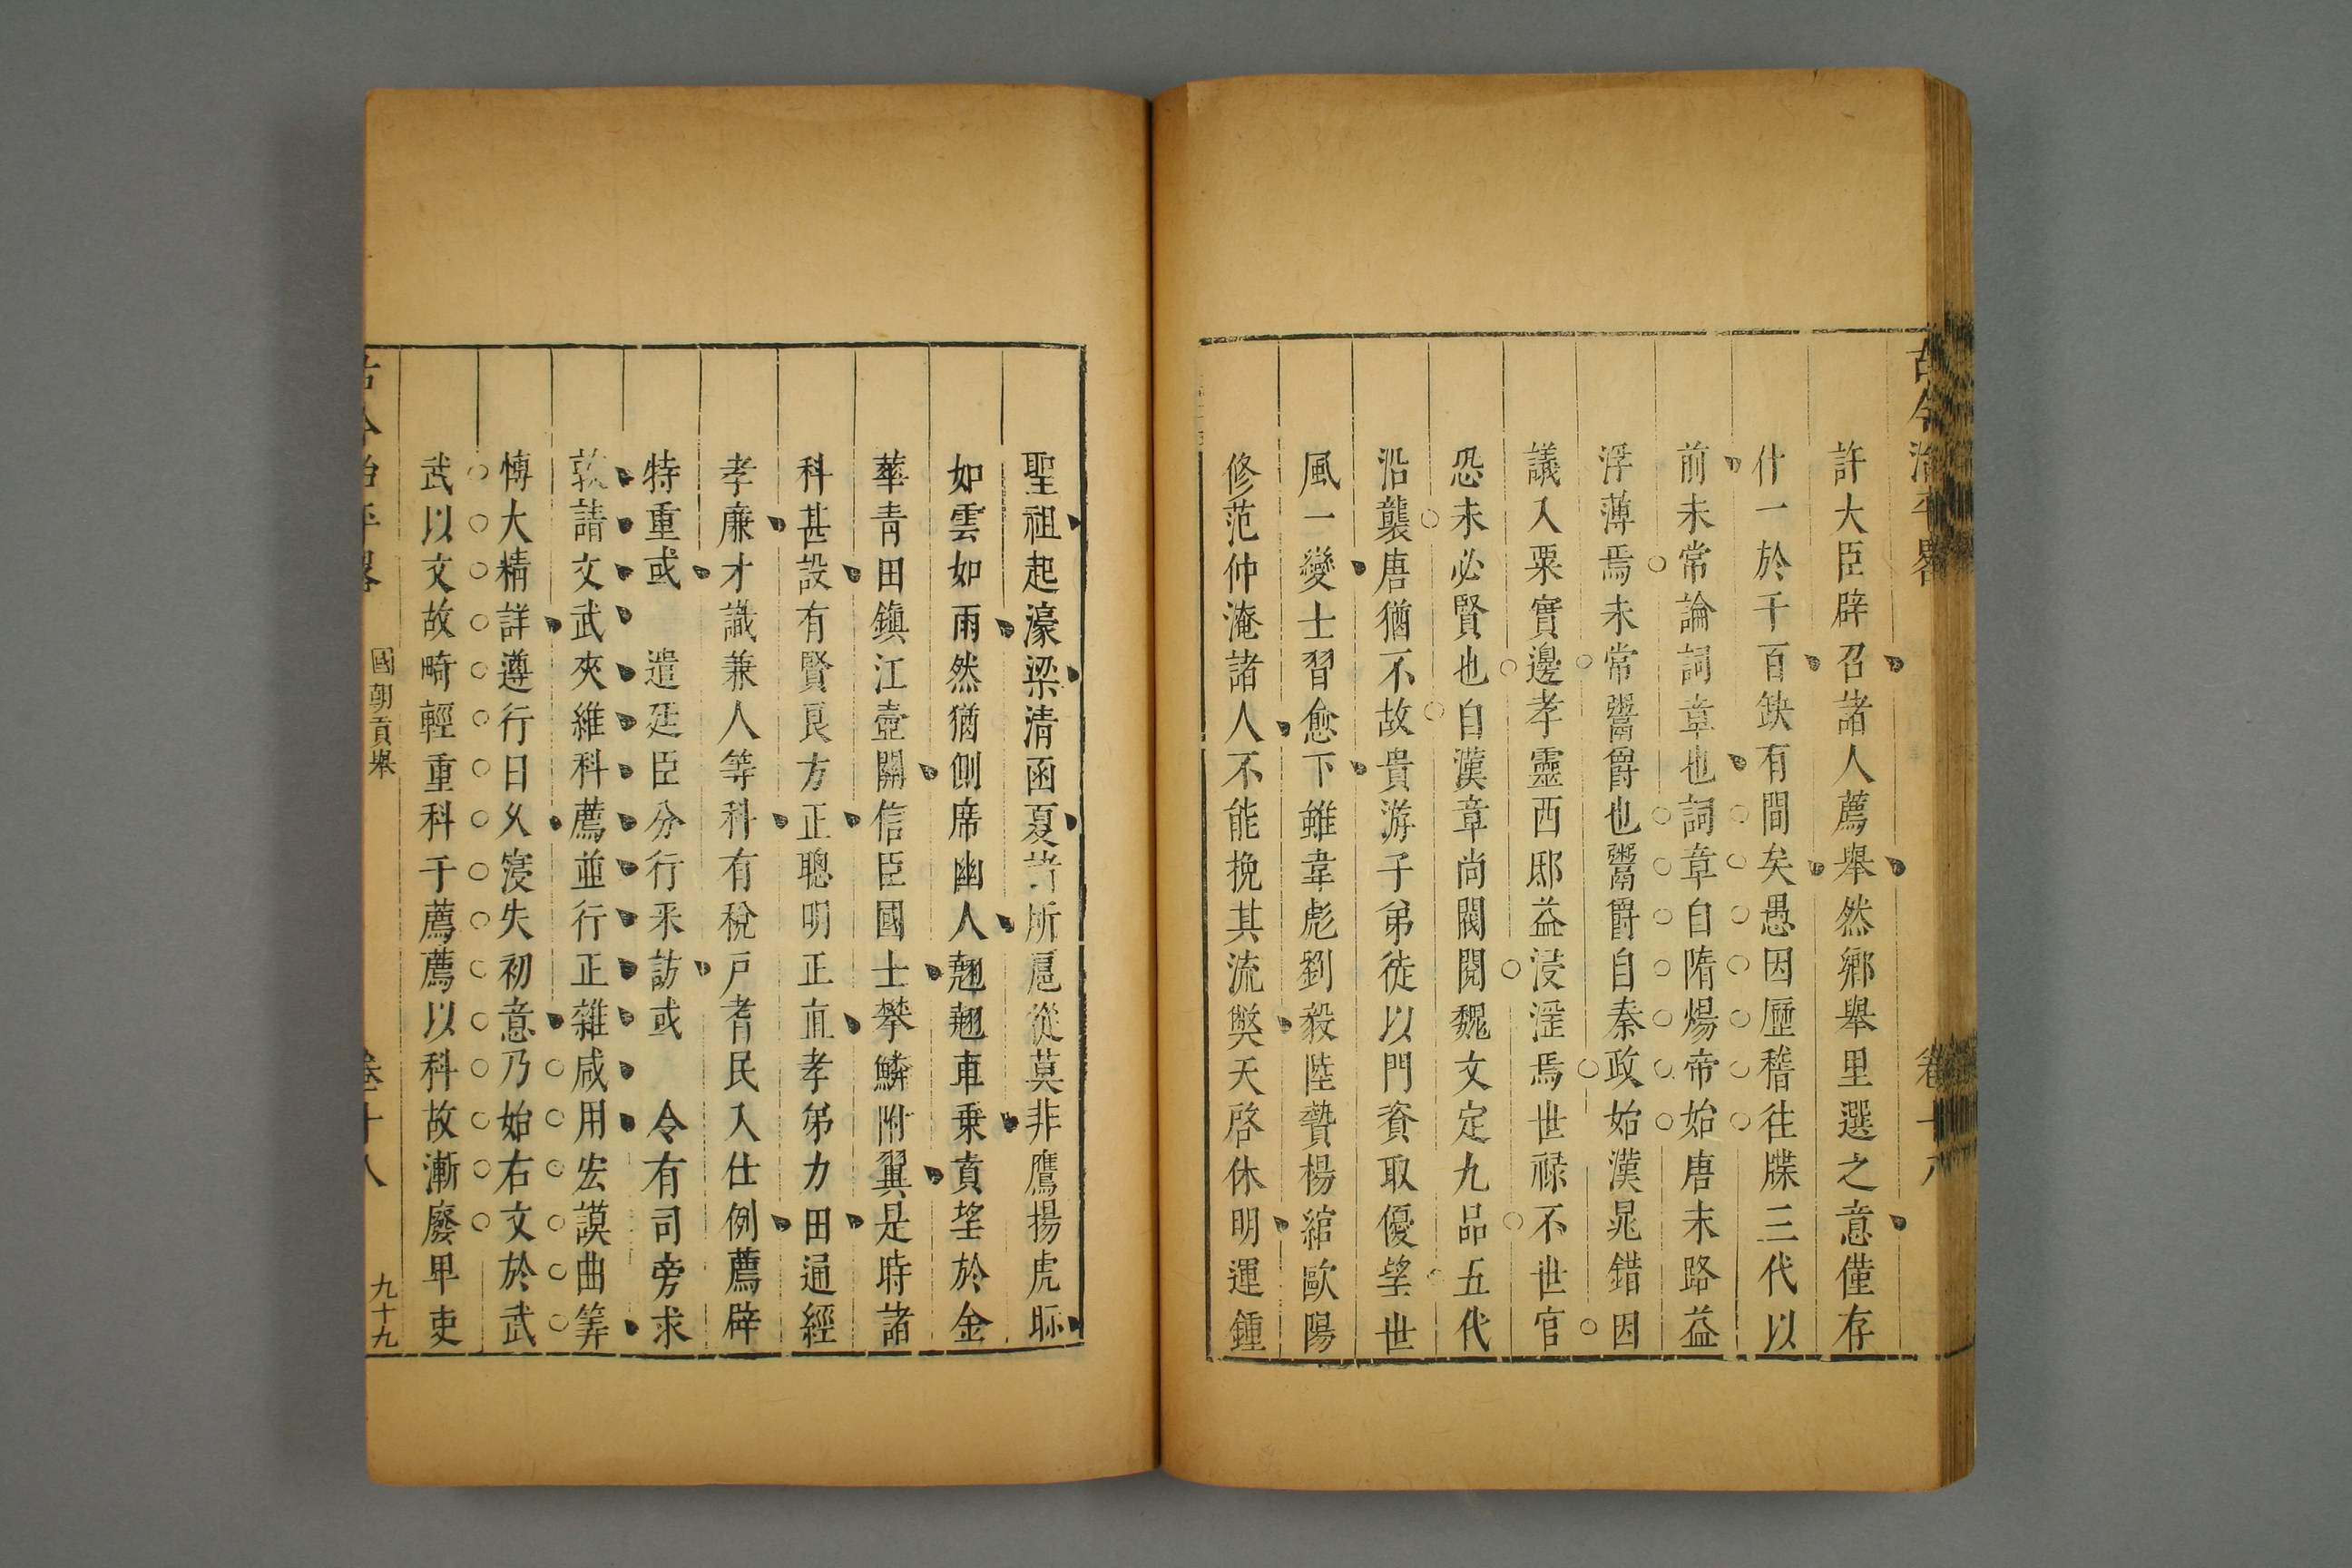 古今治平畧
卷十八
許大臣辟召諸人薦舉然鄉舉里選之意僅存
什一於千百缺有間矣愚因歷稽往牒三代以
前未常論詞章也詞章自隋煬帝始唐末路益
浮薄焉未常鬻爵也鬻爵自秦政始漢晁錯因
議入粟實邊孝靈西邸益浸淫焉世祿不世官
恐未必賢也自漢章尚閥閱魏文定九品五代
沿襲唐猶不故貴游子弟徒以門資取優望世
風一變士習愈下雖韋彪劉毅陸贄楊綰歐陽
修范仲淹諸人不能挽其流獘天啓休明運鍾
聖祖起濠梁清函夏 所扈從莫非鷹揚虎眎
如雲如雨然猶側席幽人翹翹車乗賁望於金
華青田鎮江壺關信臣國士攀鱗附翼是時諸
科甚設有賢良方正聰明正直孝弟力田通經
孝廉才識兼人等科有稅戸耆民入仕例薦辟
特重或 遣廷臣分行采訪或 令有司旁求
敦請文武夾維科薦並行正雜咸用宏謨曲筭
愽大精詳遵行日久寖失初意乃始右文於武
武以文故畸輕重科于薦薦以科故漸廢甲吏
古今治平畧
國朝貢舉
卷十八
九十九